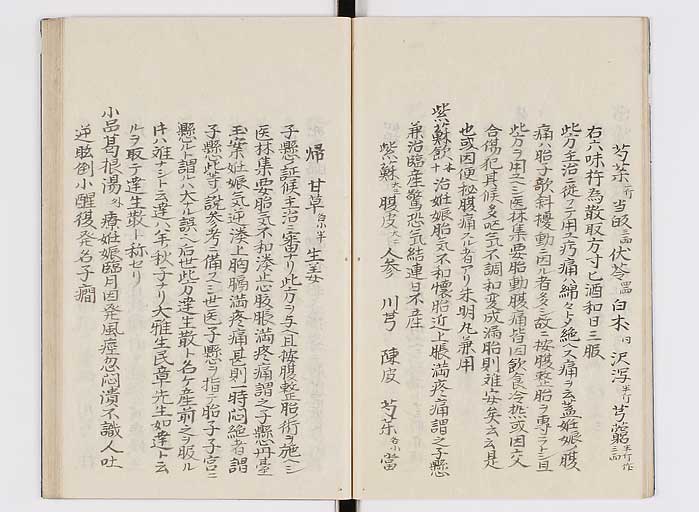 芍薬一斤 当皈三両 伏苓四両 白朮四両 沢瀉半斤 芎藭半斤作三両
右六味杵為散取方寸匕酒和日三服
此方主治ニ従フテ用ユ㽲痛ハ綿々トメ絶ヘス痛ヲ云蓋妊娠ノ腹
痛ハ胎子欹斜擾動ニ因ル者多シ故ニ按腹整胎ヲ専ラトシ且
此方ヲ用ユヘシ医林集要胎動腹痛皆因飲食冷熱或因交
合傷犯其候多呕气不調和変成漏胎則難安矣云云是
也或因便秘腹痛スル者アリ朱明丸兼用
紫蘓飲本 治妊娠胎気不和懐胎近上脹満疼痛謂之子懸
兼治臨産驚恐気結連日不産
紫蘓大二 腹皮大二 人参 川芎 陳皮 芍薬各小 當
帰 甘草各小半 生姜
子懸ノ証候主治ニ審ナリ此方ヲ与ヘ且按腹整胎ノ術ヲ施ヘシ
医林集要胎気不和湊上心腹脹満疼痛謂之子懸丹臺
玉案妊娠気逆湊上胸膈満疼痛甚則一時悶絶者謂
子懸此等ノ説参考ニ備フヘシ世医子懸ヲ指テ胎子子宮ニ
懸ルト謂ルハ大ナル誤ヘ后世此方ヲ達生散ト名ケ産前之ヲ服ル
片ハ難ナシト云達ハ羊ノ秋子ナリ大雅生民章先生如達ト云
ルヲ取テ達生散ト称セリ
小品葛根湯外 療妊娠臨月因発風痙忽悶潰不識人吐
逆眩倒小醒復発名子癇